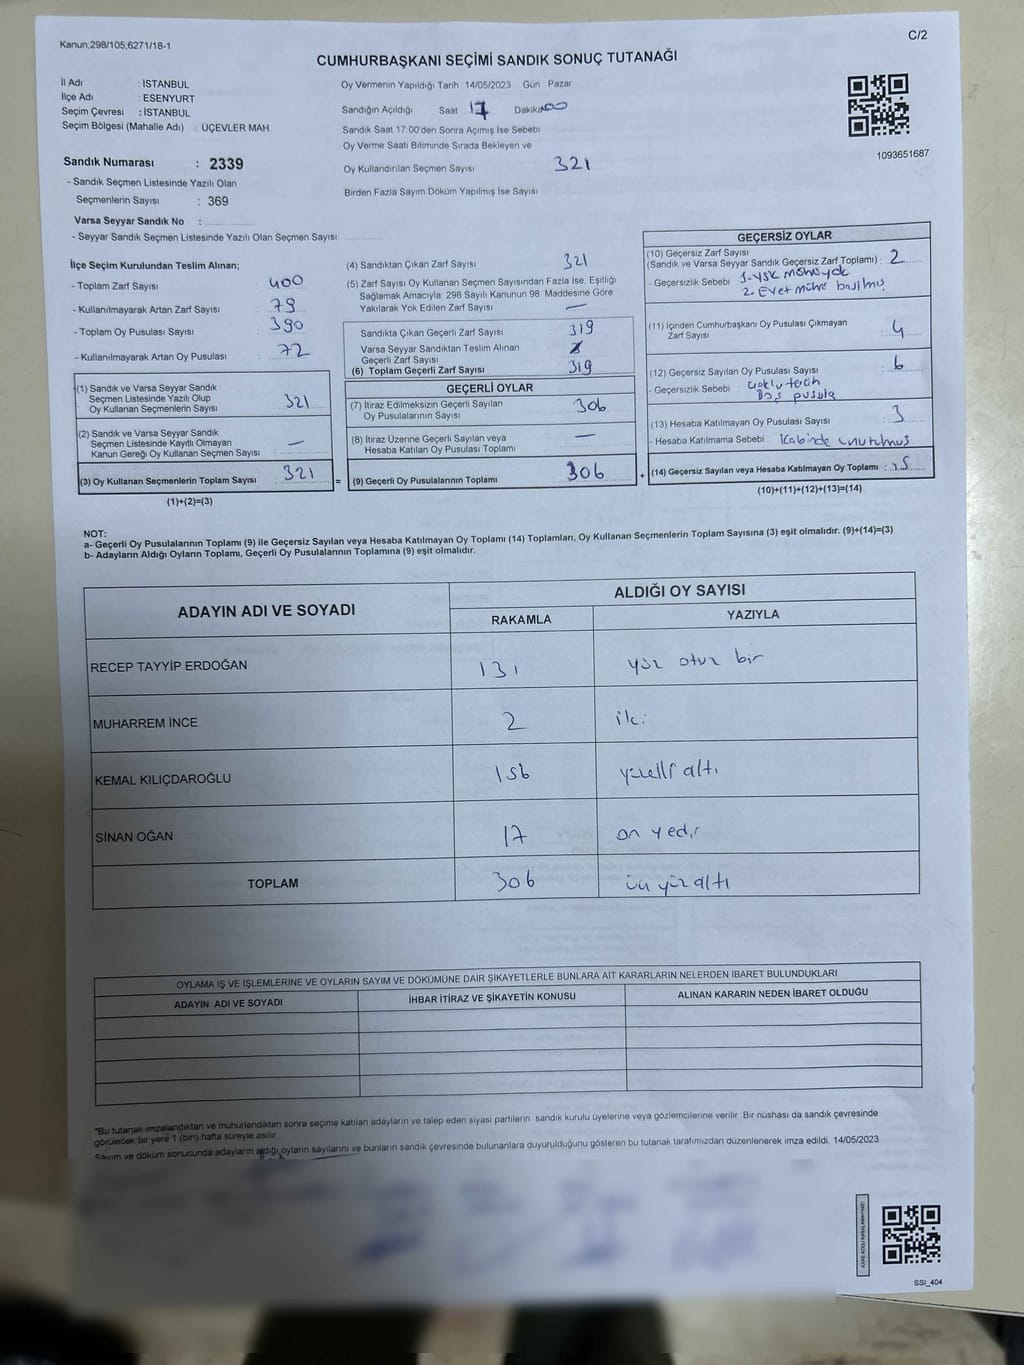 Kanun;298/105;6271/18-1
C/2
CUMHURBAŞKANI SEÇİMİ SANDIK SONUÇ TUTANAĞI
İl Adı : İSTANBUL
İlçe Adı : ESENYURT
Seçim Çevresi : İSTANBUL
Seçim Bölgesi (Mahalle Adı) : ÜÇEVLER MAH.
Oy Vermenin Yapıldığı Tarih 14/05/2023 Gün Pazar
Sandığın Açıldığı Saat 17 Dakika 00
Sandık Saat 17:00'den Sonra Açımış İse Sebebi
Oy Verme Saati Bitiminde Sırada Bekleyen ve
Oy Kullandırılan Seçmen Sayısı 321
Birden Fazla Sayım Döküm Yapılmış İse Sayısı
1093651687
Sandık Numarası : 2339
- Sandık Seçmen Listesinde Yazılı Olan
Seçmenlerin Sayısı : 369
Varsa Seyyar Sandık No :
- Seyyar Sandık Seçmen Listesinde Yazılı Olan Seçmen Sayısı:
İlçe Seçim Kurulundan Teslim Alınan;
- Toplam Zarf Sayısı : 400
- Kullanılmayarak Artan Zarf Sayısı : 79
- Toplam Oy Pusulası Sayısı : 390
- Kullanılmayarak Artan Oy Pusulası : 72
(1) Sandık ve Varsa Seyyar Sandık
Seçmen Listesinde Yazılı Olup
Oy Kullanan Seçmenlerin Sayısı : 321
(2) Sandık ve Varsa Seyyar Sandık
Seçmen Listesinde Kayıtlı Olmayan
Kanun Gereği Oy Kullanan Seçmen Sayısı : —
(3) Oy Kullanan Seçmenlerin Toplam Sayısı : 321
(1)+(2)=(3)
(4) Sandıktan Çıkan Zarf Sayısı 321
(5) Zarf Sayısı Oy Kullanan Seçmen Sayısından Fazla İse, Eşitliği
Sağlamak Amacıyla; 298 Sayılı Kanunun 98. Maddesine Göre
Yakılarak Yok Edilen Zarf Sayısı —
Sandıkta Çıkan Geçerli Zarf Sayısı 319
Varsa Seyyar Sandıktan Teslim Alınan
Geçerli Zarf Sayısı
(6) Toplam Geçerli Zarf Sayısı 319
GEÇERLİ OYLAR
(7) İtiraz Edilmeksizin Geçerli Sayılan
Oy Pusulalarının Sayısı 306
(8) İtiraz Üzerine Geçerli Sayılan veya
Hesaba Katılan Oy Pusulası Toplamı —
= (9) Geçerli Oy Pusulalarının Toplamı 306
GEÇERSİZ OYLAR
(10) Geçersiz Zarf Sayısı
(Sandık ve Varsa Seyyar Sandık Geçersiz Zarf Toplamı) : 2
- Geçersizlik Sebebi : 1-YSK mührü yok
2. Evet mührü basılmış
(11) İçinden Cumhurbaşkanı Oy Pusulası Çıkmayan
Zarf Sayısı : 4
(12) Geçersiz Sayılan Oy Pusulası Sayısı : 6
- Geçersizlik Sebebi : çoklu tercih
Boş pusula
(13) Hesaba Katılmayan Oy Pusulası Sayısı : 3
- Hesaba Katılmama Sebebi : Kabinde unutulmuş
+ (14) Geçersiz Sayılan veya Hesaba Katılmayan Oy Toplamı : 15
(10)+(11)+(12)+(13)=(14)
NOT:
a- Geçerli Oy Pusulalarının Toplamı (9) ile Geçersiz Sayılan veya Hesaba Katılmayan Oy Toplamı (14) Toplamları, Oy Kullanan Seçmenlerin Toplam Sayısına (3) eşit olmalıdır. (9)+(14)=(3)
b- Adayların Aldığı Oyların Toplamı, Geçerli Oy Pusulalarının Toplamına (9) eşit olmalıdır.
ADAYIN ADI VE SOYADI
ALDIĞI OY SAYISI
RAKAMLA YAZIYLA
RECEP TAYYİP ERDOĞAN 131 yüz otuz bir
MUHARREM İNCE 2 iki
KEMAL KILIÇDAROĞLU 156 yüzelli altı
SİNAN OĞAN 17 on yedi
TOPLAM 306 üç yüz altı
OYLAMA İŞ VE İŞLEMLERİNE VE OYLARIN SAYIM VE DÖKÜMÜNE DAİR ŞİKAYETLERLE BUNLARA AİT KARARLARIN NELERDEN İBARET BULUNDUKLARI
ADAYIN ADI VE SOYADI İHBAR İTİRAZ VE ŞİKAYETİN KONUSU ALINAN KARARIN NEDEN İBARET OLDUĞU
*Bu tutanak imzalandıktan ve mühürlendikten sonra seçime katılan adayların ve talep eden siyasi partilerin sandık kurulu üyelerine veya gözlemcilerine verilir. Bir nüshası da sandık çevresinde
görülecek bir yere 1 (bir) hafta süreyle asılır.
Sayım ve döküm sonucunda adayların aldığı oyların sayılarını ve bunların sandık çevresinde bulunanlara duyurulduğunu gösteren bu tutanak tarafımızdan düzenlenerek imza edildi. 14/05/2023
SSI_404